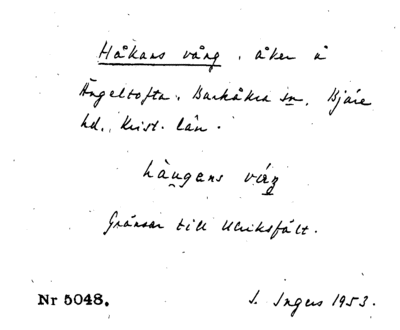 Håkans vång, åker å
Ängeltofta. Barkåkra sn, Bjäre
hd, Krist. län.
Gränsar till Ulriksfält.
Nr 5048. I. Ingers 1953.